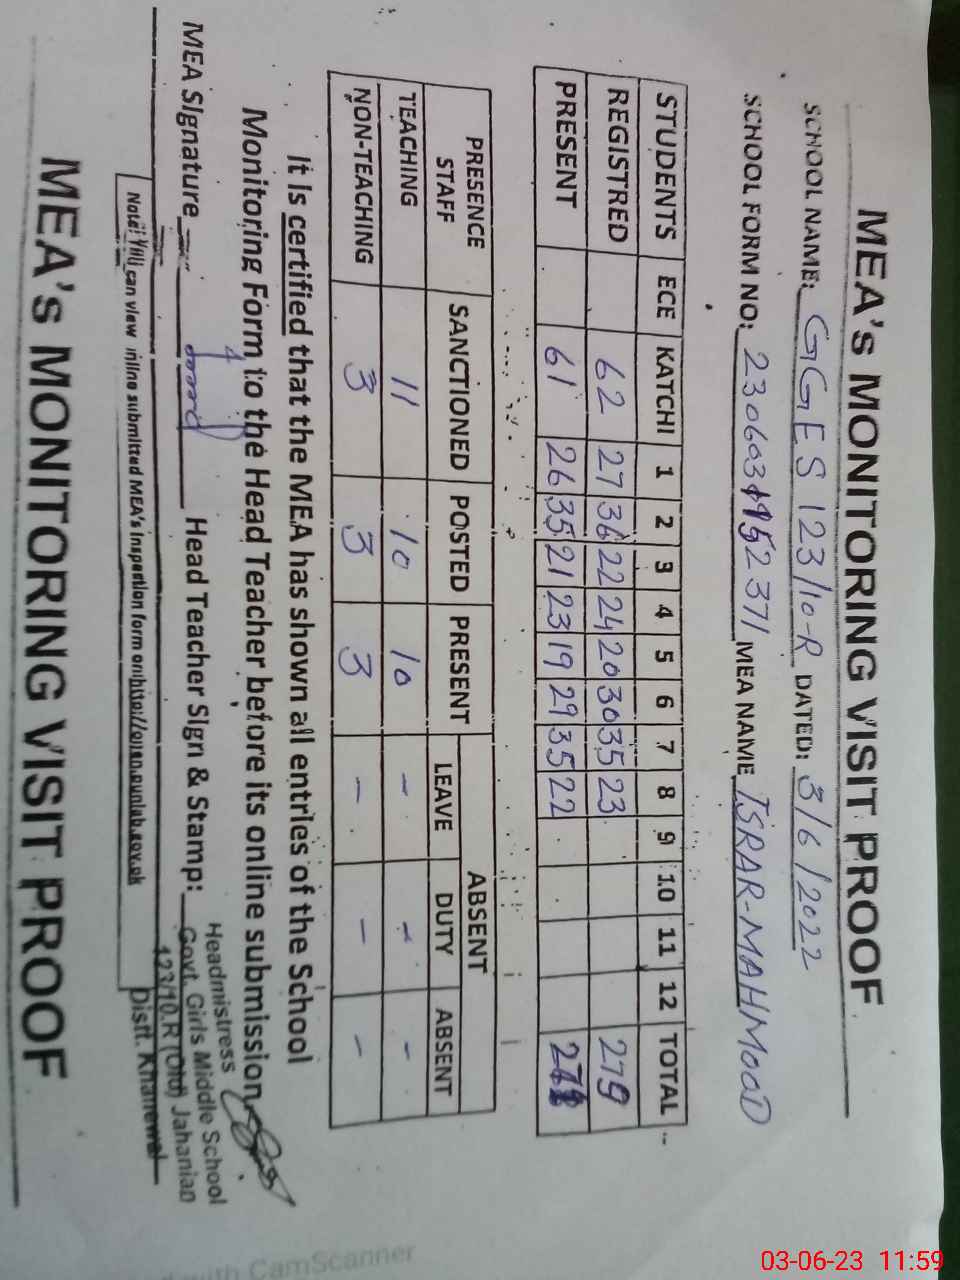 MEA's MONITORING VISIT PROOF
SCHOOL NAME: GGES 123/10-R DATED: 3/6/2022
SCHOOL FORM NO: 2371 MEA NAME ISRAR-MAHMOOD
STUDENTS ECE KATCHI 1 2 3 4 5 6 7 8 9 10 11 12 TOTAL
REGISTRED 62 27 36 22 24 20 30 35 23 279
PRESENT 61 26 35 21 23 19 29 35 22
PRESENCE STAFF SANCTIONED POSTED PRESENT ABSENT
LEAVE DUTY ABSENT
TEACHING 11 10 10 - - -
NON-TEACHING 3 3 3 - - -
It is certified that the MEA has shown all entries of the School
Monitoring Form to the Head Teacher before its online submission.
MEA Signature Head Teacher Sign & Stamp:
Headmistress
Govt. Girls Middle School
123/10.R (Old) Jahanian
Distt. Khanewal
Note: You can view inline submitted MEA's inspection form on http://open.punjab.gov.pk
MEA's MONITORING VISIT PROOF
with CamScanner
03-06-23 11:59